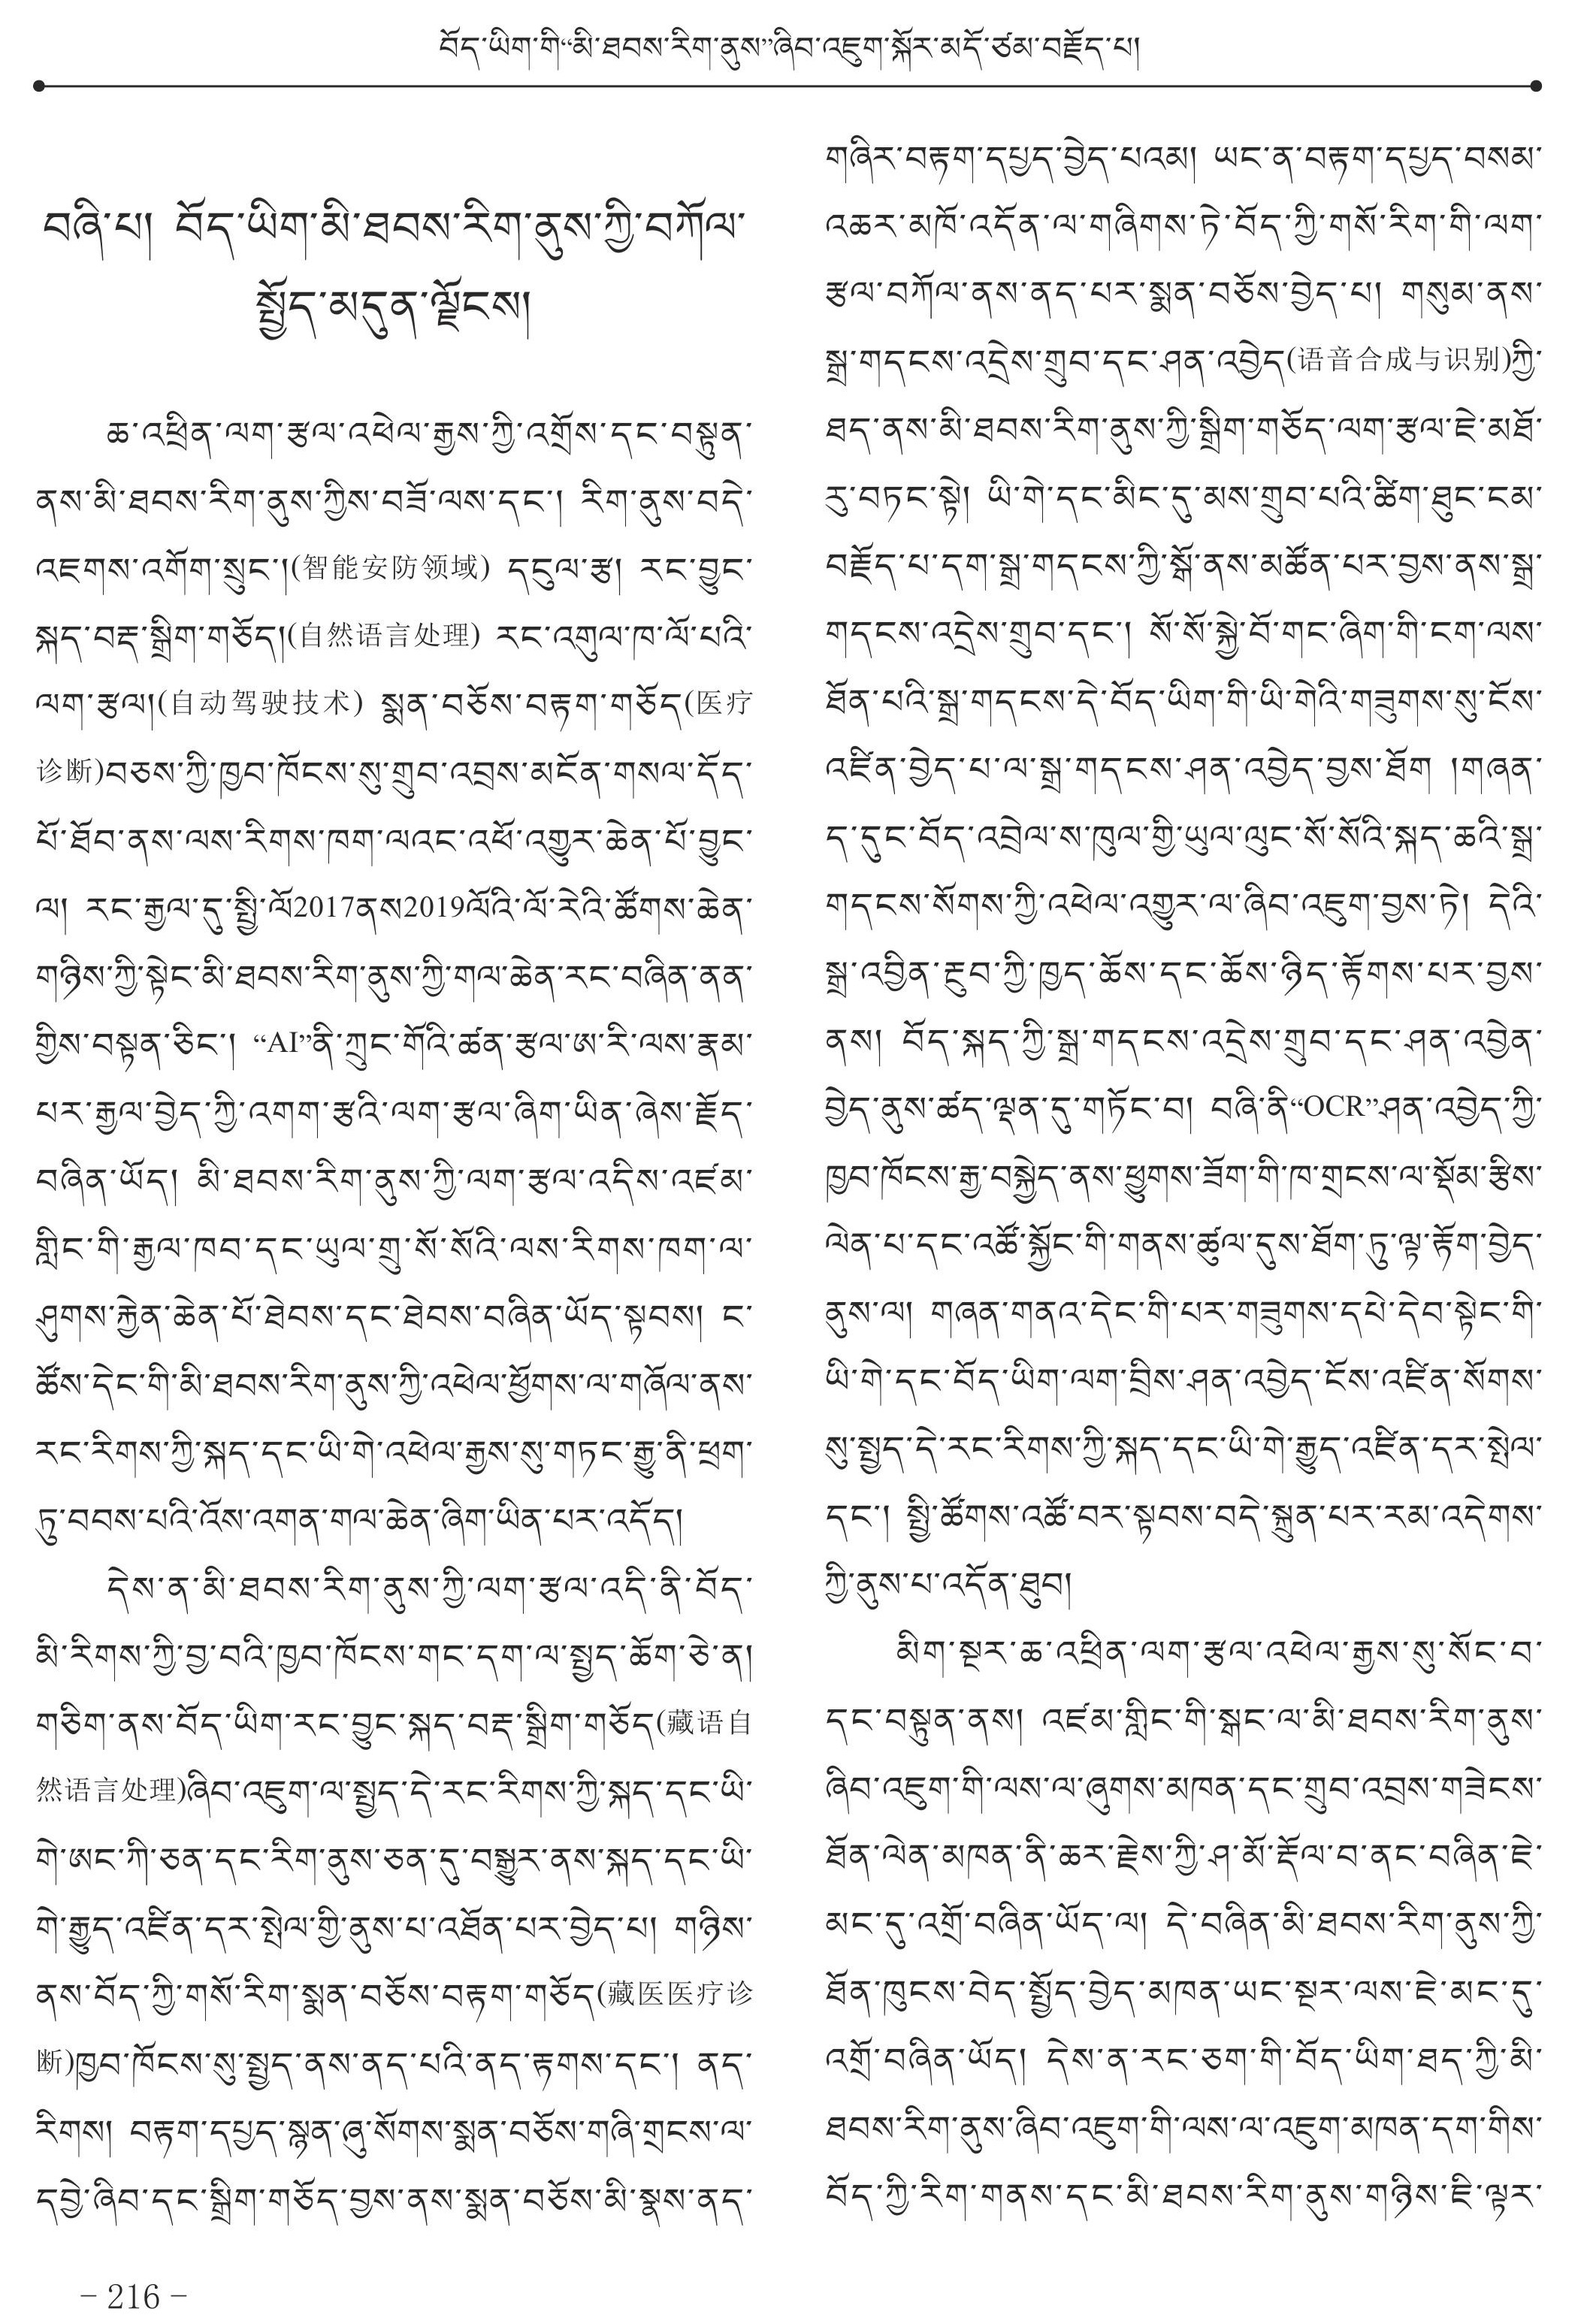 བོད་ཡིག་གི་“མི་ཐབས་རིག་ནུས”ཞིབ་འཇུག་སྐོར་མདོ་ཙམ་བརྗོད་པ།
བཞི་པ། བོད་ཡིག་མི་ཐབས་རིག་ནུས་ཀྱི་བཀོལ་
སྤྱོད་མདུན་ལྗོངས།
ཆ་འཕྲིན་ལག་རྩལ་འཕེལ་རྒྱས་ཀྱི་འགྲོས་དང་བསྟུན་
ནས་མི་ཐབས་རིག་ནུས་ཀྱིས་བཟོ་ལས་དང་། རིག་ནུས་བདེ་
འཇགས་འགོག་སྲུང་།(智能安防领域) དངུལ་རྩ། རང་བྱུང་
སྐད་བརྡ་སྒྲིག་གཅོད།(自然语言处理) རང་འགུལ་ཁ་ལོ་པའི་
ལག་རྩལ།(自动驾驶技术) སྨན་བཅོས་བརྟག་གཅོད(医疗
诊断)བཅས་ཀྱི་ཁྱབ་ཁོངས་སུ་གྲུབ་འབྲས་མངོན་གསལ་དོད་
པོ་ཐོབ་ནས་ལས་རིགས་ཁག་ལའང་འཕོ་འགྱུར་ཆེན་པོ་བྱུང་
ལ། རང་རྒྱལ་དུ་སྤྱི་ལོ2017ནས2019ལོའི་ལོ་རེའི་ཚོགས་ཆེན་
གཉིས་ཀྱི་སྟེང་མི་ཐབས་རིག་ནུས་ཀྱི་གལ་ཆེན་རང་བཞིན་ནན་
གྱིས་བསྟན་ཅིང་། “AI”ནི་ཀྲུང་གོའི་ཚན་རྩལ་ཨ་རི་ལས་རྣམ་
པར་རྒྱལ་བྱེད་ཀྱི་འགག་རྩའི་ལག་རྩལ་ཞིག་ཡིན་ཞེས་རྗོད་
བཞིན་ཡོད། མི་ཐབས་རིག་ནུས་ཀྱི་ལག་རྩལ་འདིས་འཛམ་
གླིང་གི་རྒྱལ་ཁབ་དང་ཡུལ་གྲུ་སོ་སོའི་ལས་རིགས་ཁག་ལ་
ཤུགས་རྐྱེན་ཆེན་པོ་ཐེབས་དང་ཐེབས་བཞིན་ཡོད་སྟབས། ང་
ཚོས་དེང་གི་མི་ཐབས་རིག་ནུས་ཀྱི་འཕེལ་ཕྱོགས་ལ་གཞོལ་ནས་
རང་རིགས་ཀྱི་སྐད་དང་ཡི་གེ་འཕེལ་རྒྱས་སུ་གཏང་རྒྱུ་ནི་ཕྲག་
ཏུ་བབས་པའི་འོས་འགན་གལ་ཆེན་ཞིག་ཡིན་པར་འདོད།
དེས་ན་མི་ཐབས་རིག་ནུས་ཀྱི་ལག་རྩལ་འདི་ནི་བོད་
མི་རིགས་ཀྱི་བྱ་བའི་ཁྱབ་ཁོངས་གང་དག་ལ་སྤྱད་ཆོག་ཅེ་ན།
གཅིག་ནས་བོད་ཡིག་རང་བྱུང་སྐད་བརྡ་སྒྲིག་གཅོད(藏语自
然语言处理)ཞིབ་འཇུག་ལ་སྤྱད་དེ་རང་རིགས་ཀྱི་སྐད་དང་ཡི་
གེ་ཨང་ཀི་ཅན་དང་རིག་ནུས་ཅན་དུ་བསྒྱུར་ནས་སྐད་དང་ཡི་
གེ་རྒྱུད་འཛིན་དར་སྤེལ་གྱི་ནུས་པ་འཐོན་པར་བྱེད་པ། གཉིས་
ནས་བོད་ཀྱི་གསོ་རིག་སྨན་བཅོས་བརྟག་གཅོད(藏医医疗诊
断)ཁྱབ་ཁོངས་སུ་སྤྱད་ནས་ནད་པའི་ནད་རྟགས་དང་། ནད་
རིགས། བརྟག་དཔྱད་སྙན་ཞུ་སོགས་སྨན་བཅོས་གཞི་གྲངས་ལ་
དབྱེ་ཞིབ་དང་སྒྲིག་གཅོད་བྱས་ནས་སྨན་བཅོས་མི་སྣས་ནད་
གཞིར་བརྟག་དཔྱད་བྱེད་པའམ། ཡང་ན་བརྟག་དཔྱད་བསམ་
འཆར་མཁོ་འདོན་ལ་གཞིགས་ཏེ་བོད་ཀྱི་གསོ་རིག་གི་ལག་
རྩལ་བཀོལ་ནས་ནད་པར་སྨན་བཅོས་བྱེད་པ། གསུམ་ནས་
སྒྲ་གདངས་འདྲེས་གྲུབ་དང་ཤན་འབྱེད(语音合成与识别)ཀྱི་
ཐད་ནས་མི་ཐབས་རིག་ནུས་ཀྱི་སྒྲིག་གཅོད་ལག་རྩལ་ཇེ་མཐོ་
རུ་བཏང་སྟེ། ཡི་གེ་དང་མིང་དུ་མས་གྲུབ་པའི་ཚིག་ཐུང་ངམ་
བརྗོད་པ་དག་སྒྲ་གདངས་ཀྱི་སྒོ་ནས་མཚོན་པར་བྱས་ནས་སྒྲ་
གདངས་འདྲེས་གྲུབ་དང་། སོ་སོ་སྐྱེ་བོ་གང་ཞིག་གི་ངག་ལས་
ཐོན་པའི་སྒྲ་གདངས་དེ་བོད་ཡིག་གི་ཡི་གེའི་གཟུགས་སུ་ངོས་
འཛིན་བྱེད་པ་ལ་སྒྲ་གདངས་ཤན་འབྱེད་བྱས་ཐོག །གཞན་
ད་དུང་བོད་འབྲེལ་ས་ཁུལ་གྱི་ཡུལ་ལུང་སོ་སོའི་སྐད་ཆའི་སྒྲ་
གདངས་སོགས་ཀྱི་འཕེལ་འགྱུར་ལ་ཞིབ་འཇུག་བྱས་ཏེ། དེའི་
སྒྲ་འབྱིན་རྔུབ་ཀྱི་ཁྱད་ཆོས་དང་ཆོས་ཉིད་རྟོགས་པར་བྱས་
ནས། བོད་སྐད་ཀྱི་སྒྲ་གདངས་འདྲེས་གྲུབ་དང་ཤན་འབྱེན་
བྱེད་ནུས་ཚད་ལྡན་དུ་གཏོང་བ། བཞི་ནི་“OCR”ཤན་འབྱེད་ཀྱི་
ཁྱབ་ཁོངས་རྒྱ་བསྐྱེད་ནས་ཕྱུགས་ཟོག་གི་ཁ་གྲངས་ལ་སྡོམ་རྩིས་
ལེན་པ་དང་འཚོ་སྐྱོང་གི་གནས་ཚུལ་དུས་ཐོག་ཏུ་ལྟ་རྟོག་བྱེད་
ནུས་ལ། གཞན་གནའ་དེང་གི་པར་གཟུགས་དཔེ་དེབ་སྟེང་གི་
ཡི་གེ་དང་བོད་ཡིག་ལག་བྲིས་ཤན་འབྱེད་ངོས་འཛིན་སོགས་
སུ་སྤྱད་དེ་རང་རིགས་ཀྱི་སྐད་དང་ཡི་གེ་རྒྱུད་འཛིན་དར་སྤེལ་
དང་། སྤྱི་ཚོགས་འཚོ་བར་སྟབས་བདེ་སྐྲུན་པར་རམ་འདེགས་
ཀྱི་ནུས་པ་འདོན་ཐུབ།
མིག་སྔར་ཆ་འཕྲིན་ལག་རྩལ་འཕེལ་རྒྱས་སུ་སོང་བ་
དང་བསྟུན་ནས། འཛམ་གླིང་གི་སྒང་ལ་མི་ཐབས་རིག་ནུས་
ཞིབ་འཇུག་གི་ལས་ལ་ཞུགས་མཁན་དང་གྲུབ་འབྲས་གཟེངས་
ཐོན་ལེན་མཁན་ནི་ཆར་རྗེས་ཀྱི་ཤ་མོ་རྡོལ་བ་ནང་བཞིན་ཇེ་
མང་དུ་འགྲོ་བཞིན་ཡོད་ལ། དེ་བཞིན་མི་ཐབས་རིག་ནུས་ཀྱི་
ཐོན་ཁུངས་བེད་སྤྱོད་བྱེད་མཁན་ཡང་སྔར་ལས་ཇེ་མང་དུ་
འགྲོ་བཞིན་ཡོད། དེས་ན་རང་ཅག་གི་བོད་ཡིག་ཐད་ཀྱི་མི་
ཐབས་རིག་ནུས་ཞིབ་འཇུག་གི་ལས་ལ་འཇུག་མཁན་དག་གིས་
བོད་ཀྱི་རིག་གནས་དང་མི་ཐབས་རིག་ནུས་གཉིས་ཇི་ལྟར་
– 216 –